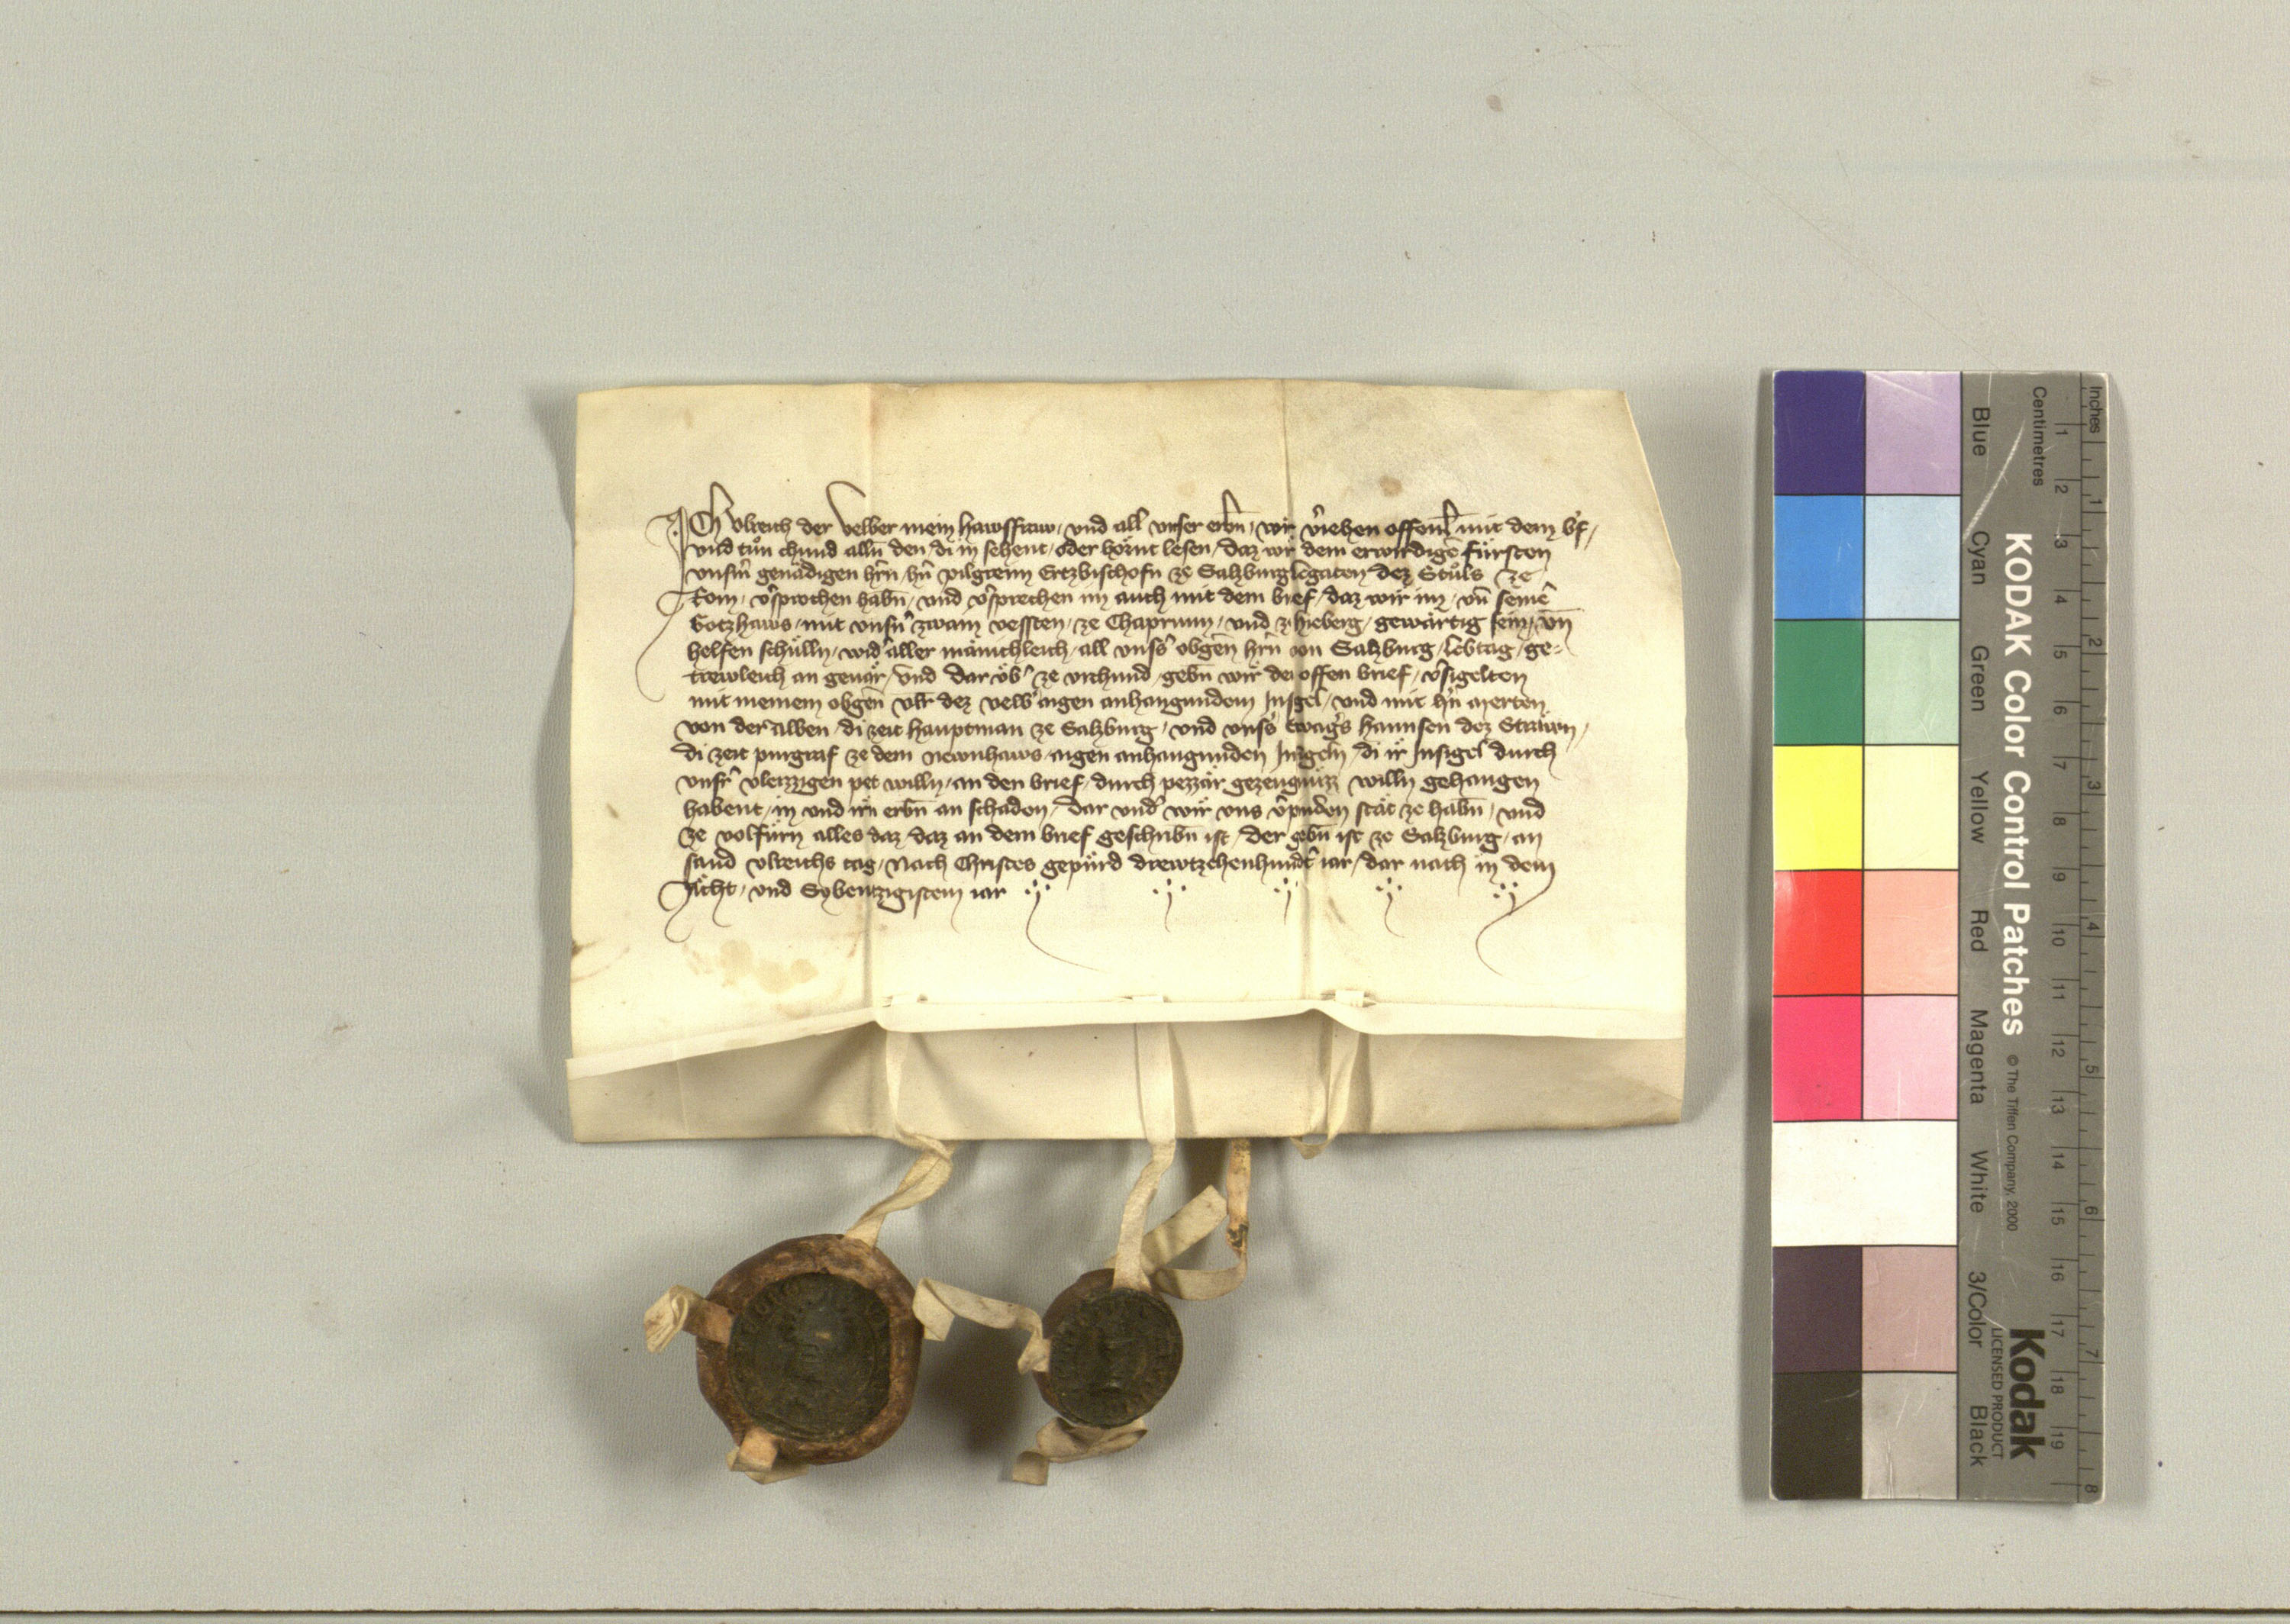 Ich vlreich der velber mein hawsfraw, vnd all vnser erbn̄, wir v̓iehen offenl̄ mit dem b̓f,
vnd tůn chund alln̄ den, di in sehent, oder hörnt lesen, daz wir dem erwirdigē fürsten
vnsm̄ genädigen hr̄n, hn̄ pilgreim Ertzbischofn ze Salzburg legaten dez Stůls ze
Rom, v̓sprochen habn̄, vnd v̓sprechen im auch mit dem brief, daz wir im, vn̄ seinē
Gotzhaws, mit vnsn̓ zwain vessten, ze Chaprunn, vnd ze hieberg, gewärtig sein, vn̄
helfen schülln, wid̓ aller mänichleich, all vnsers obgen̄ hr̄n von Salzburg, lebtag, ge-
trewleich an geuär, vnd dar vb̓ ze vrchund, gebn̄ wir den offen brief, v̓sigelten
mit meinem obgen̄ vlr̄ dez velb̓ aigen anhangundem Insigel, vnd mit hn̄ Merten
von der alben, di zeit hauptman ze Salzburg, vnd vnsers swagers hannsen dez Strawn,
di zeit purgraf ze dem Newnhaws, aigen anhangunden Insigeln, di ir Insigel durch
vnsr̓ vleizzigen pet willn, an den brief, durch pezzär gezeugnüzz willn gehangen
habent, in vnd irn erbn̄ an schaden, dar vnd̓ wir vns v̓pinden stät ze habn̄, vnd
ze volfürn alles daz, daz an dem brief geschribn̄ ist, der gebn̄ ist ze Salzburg, an
sand vlreichs tag, Nach Christes gepürd drewtzehenhund̓t iar, dar nach in dem
Acht, vnd Sybentzigistem iar
Inches
Centimetres
1 2 3 4 5 6 7 8
1 2 3 4 5 6 7 8 9 10 11 12 13 14 15 16 17 18 19
KODAK Color Control Patches
© The Tiffen Company, 2000
Kodak
LICENSED PRODUCT
Blue Cyan Green Yellow Red Magenta White 3/Color Black